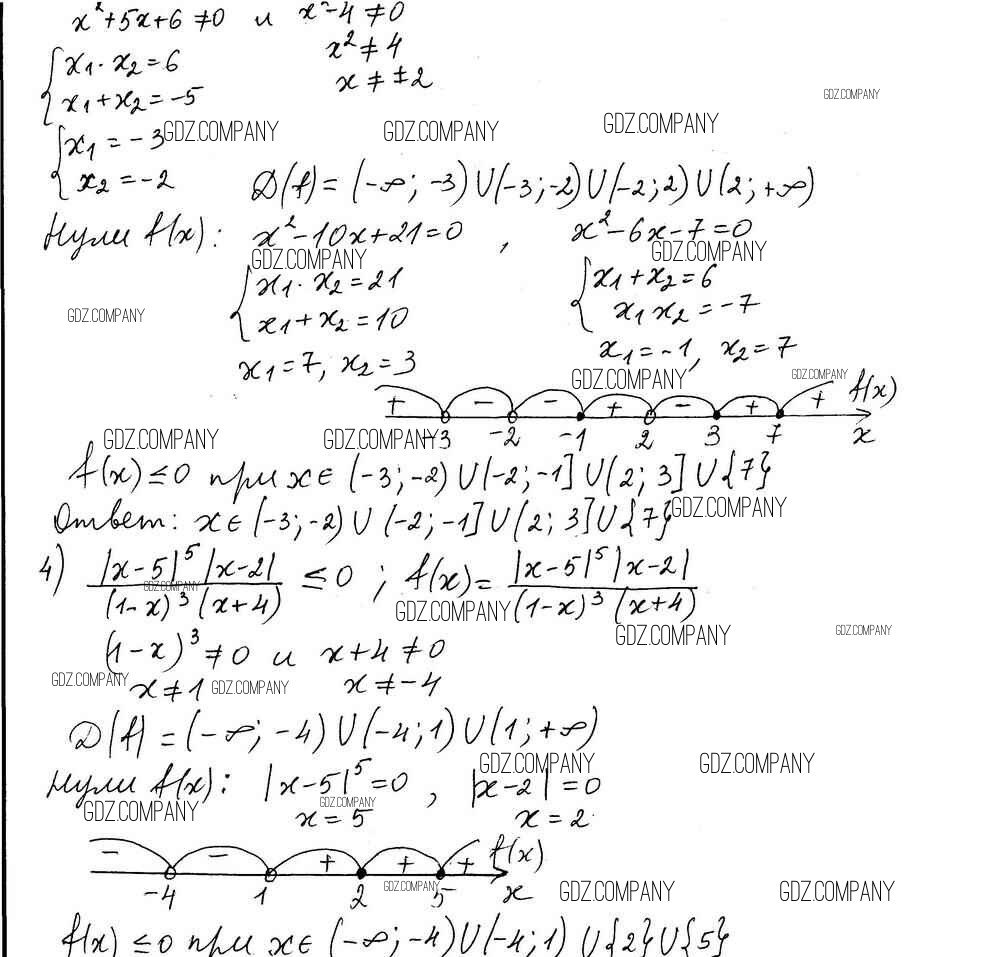 x²+5x+6≠0 и x²-4≠0
{x₁·x₂=6 x²≠4
x₁+x₂=-5 x≠±2
GDZ.COMPANY
{x₁=-3 GDZ.COMPANY GDZ.COMPANY GDZ.COMPANY
x₂=-2 D(f)=(-∞;-3)U(-3;-2)U(-2;2)U(2;+∞)
Нули f(x): x²-10x+21=0, x²-6x-7=0
GDZ.COMPANY GDZ.COMPANY
{x₁·x₂=21 {x₁+x₂=6
GDZ.COMPANY x₁+x₂=10 x₁x₂=-7
x₁=7, x₂=3 x₁=-1, x₂=7
GDZ.COMPANY GDZ.COMPANY
+ - - + - + + f(x)
GDZ.COMPANY GDZ.COMPANY -3 -2 -1 2 3 7 x
f(x)≤0 при x∈(-3;-2)U(-2;-1]U(2;3]U{7}
Ответ: x∈(-3;-2)U(-2;-1]U(2;3]U{7} GDZ.COMPANY
4) |x-5|⁵|x-2| ≤0; f(x)= |x-5|⁵|x-2|
GDZ.COMPANY GDZ.COMPANY
(1-x)³(x+4) (1-x)³(x+4)
(1-x)³≠0 и x+4≠0 GDZ.COMPANY GDZ.COMPANY
GDZ.COMPANY x≠1 GDZ.COMPANY x≠-4
D(f)=(-∞;-4)U(-4;1)U(1;+∞)
GDZ.COMPANY GDZ.COMPANY
Нули f(x): |x-5|⁵=0, |x-2|=0
GDZ.COMPANY GDZ.COMPANY
x=5 x=2
- - + + + f(x)
-4 1 2 GDZ.COMPANY 5 x GDZ.COMPANY GDZ.COMPANY
f(x)≤0 при x∈(-∞;-4)U(-4;1)U{2}U{5}